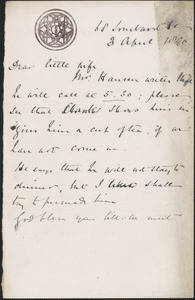 68 Lombard St.
3 April
Dear little wife
Mr. Hansen writes that
he will call at 5.30: please
see that shows him in
give him a cup of tea, if we
has not come in.
He says that he will not stay to
dinner, but I shall
try to persuade him
God bless you